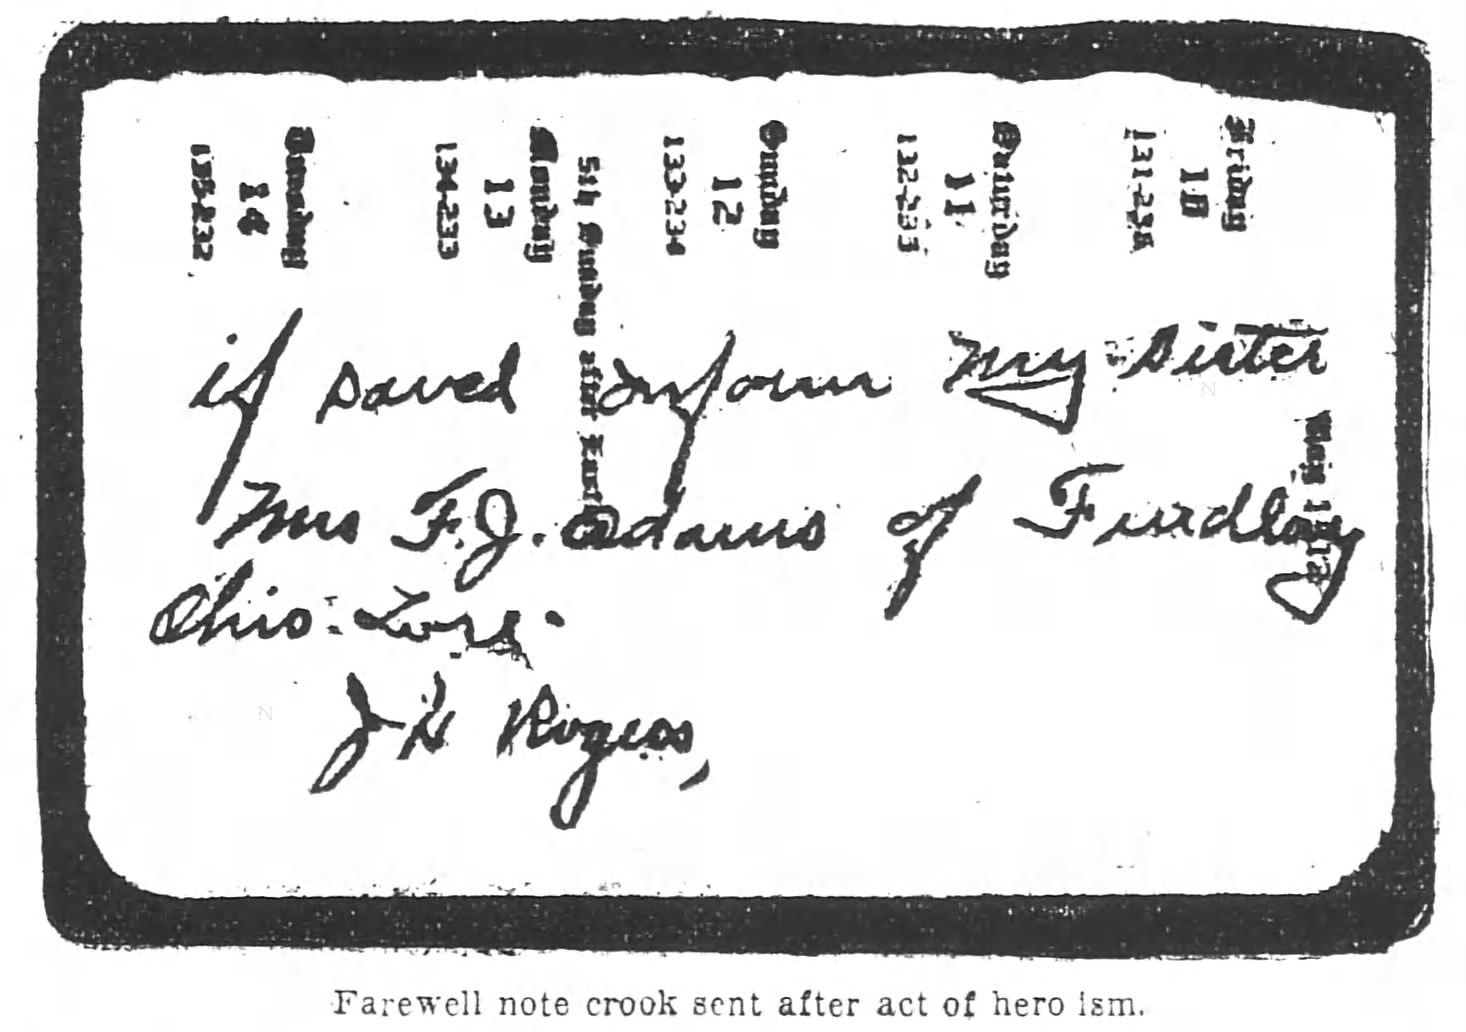 Tuesday
14
135-232
Monday
13
134-233
5th Sunday after East
Sunday
12
133-234
Saturday
11
Friday
10
if saved inform my sister
Mrs F.J. Adams of Findlay
Ohio. Lost.
J H Rogers,
May
Farewell note crook sent after act of hero ism.